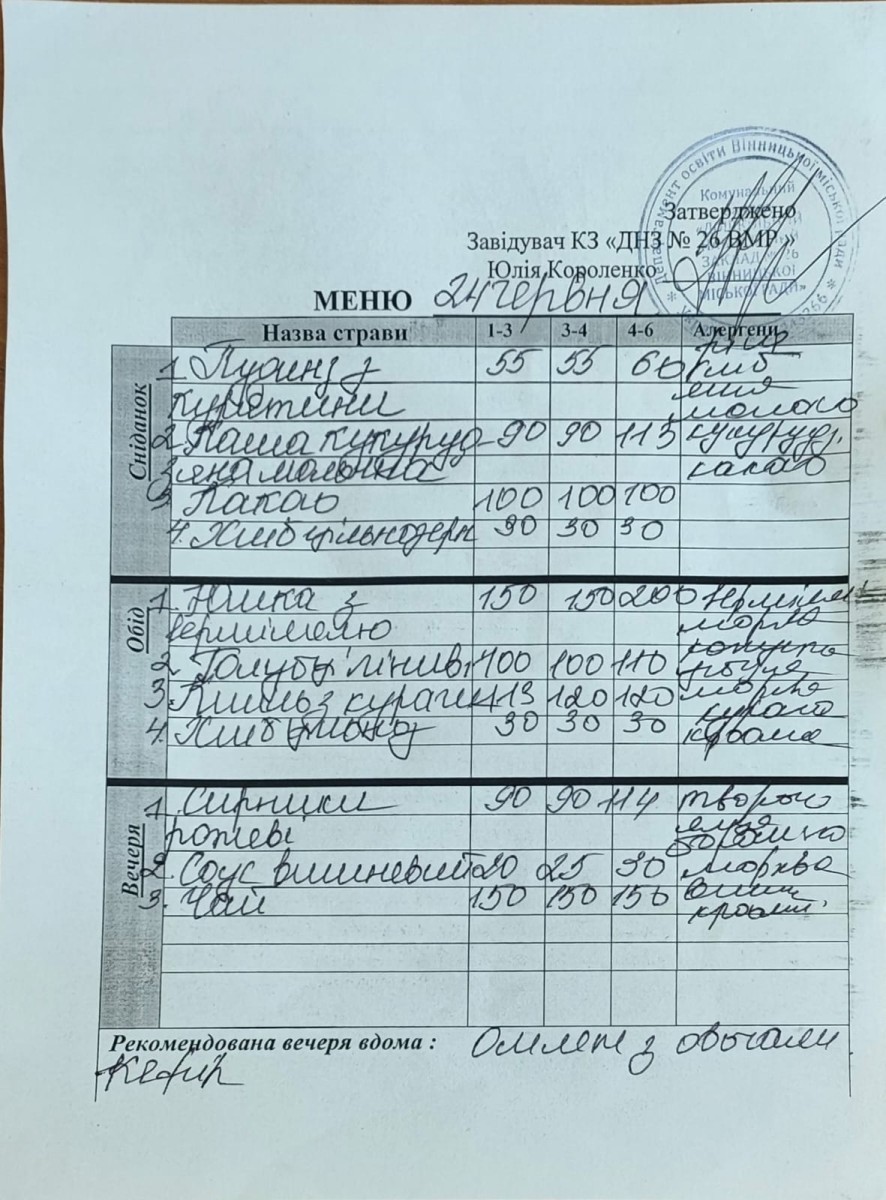 Департамент освіти Вінницької міської ради
Комунальний
ЗАКЛАД № 26
ВІННИЦЬКОЇ
МІСЬКОЇ РАДИ»
Затверджено
Завідувач КЗ «ДНЗ № 26 ВМР »
Юлія Короленко
МЕНЮ 24 червня
Назва страви 1-3 3-4 4-6 Алергени
Сніданок
1. Пудинг з 55 55 60 хліб
курятини молоко
2. Каша кукуруд 90 90 113 кукурудз.
зяна молочна какао
3. Какао 100 100 100
4. Хліб цільнозерн 30 30 30
Обід
1. Юшка з 150 150 200
вермішеллю морква
2. Голубці лініві 100 100 110
3. Кисіль з кураги 113 120 120 морква
4. Хліб 30 30 30
Вечеря
1. Сирники 90 90 114 творог
рожеві
2. Соус вишневий 20 25 30 морква
3. Чай 150 150 150
Рекомендована вечеря вдома : Омлет з овочами
Кефір